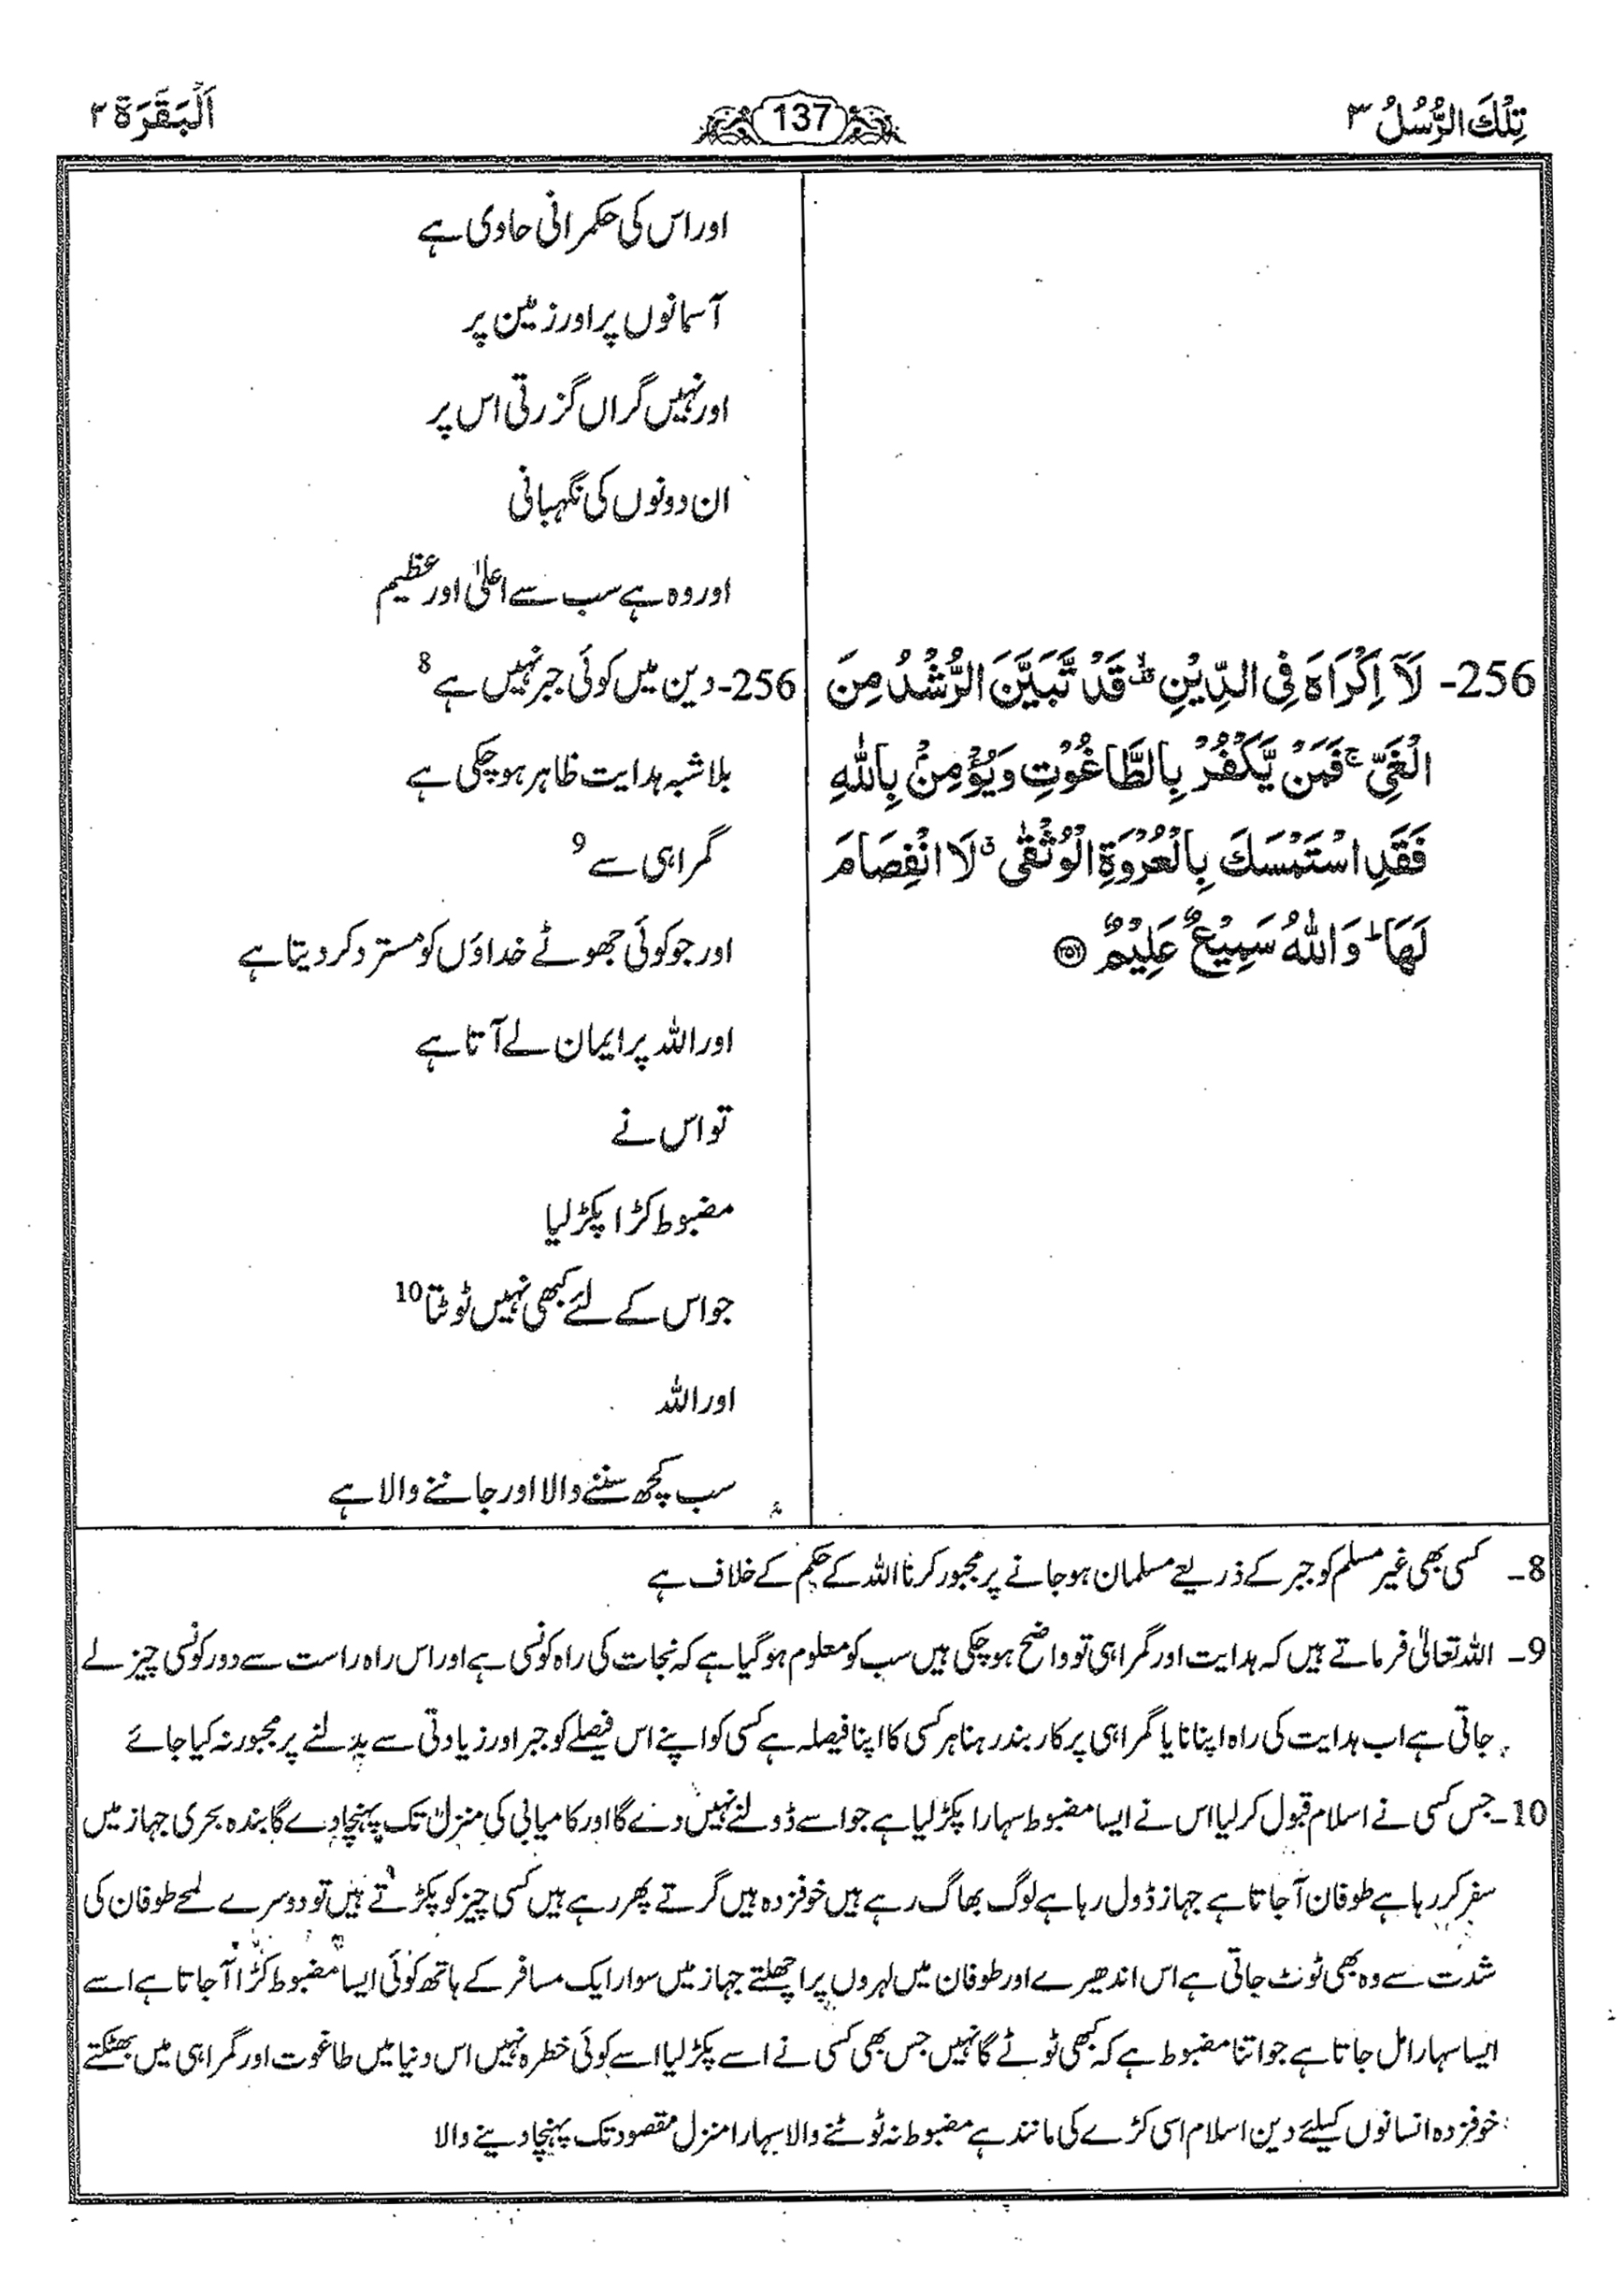 تِلْكَ الرُّسُلُ ٣
137
اَلْبَقَرَة ٢
256- لَاۤ اِكْرَاهَ فِی الدِّیْنِ ۙ۫ قَدْ تَّبَیَّنَ الرُّشْدُ مِنَ
الْغَیِّ ۚ فَمَنْ یَّكْفُرْ بِالطَّاغُوْتِ وَیُؤْمِنْۢ بِاللّٰهِ
فَقَدِ اسْتَمْسَكَ بِالْعُرْوَةِ الْوُثْقٰی ۗ لَا انْفِصَامَ
لَهَا ؕ وَاللّٰهُ سَمِیْعٌ عَلِیْمٌ ﴿۲۵۶﴾
اور اس کی حکمرانی حاوی ہے
آسمانوں پر اور زمین پر
اور نہیں گراں گزرتی اس پر
ان دونوں کی نگہبانی
اور وہ ہے سب سے اعلیٰ اور عظیم
256- دین میں کوئی جبر نہیں ہے 8
بلا شبہ ہدایت ظاہر ہو چکی ہے
گمراہی سے 9
اور جو کوئی جھوٹے خداؤں کو مسترد کر دیتا ہے
اور اللہ پر ایمان لے آتا ہے
تو اس نے
مضبوط کڑا پکڑ لیا
جو اس کے لئے کبھی نہیں ٹوٹتا 10
اور اللہ
سب کچھ سننے والا اور جاننے والا ہے
8- کسی بھی غیر مسلم کو جبر کے ذریعے مسلمان ہو جانے پر مجبور کرنا اللہ کے حکم کے خلاف ہے
9- اللہ تعالیٰ فرماتے ہیں کہ ہدایت اور گمراہی تو واضح ہو چکی ہیں سب کو معلوم ہو گیا ہے کہ نجات کی راہ کونسی ہے اور اس راہ راست سے دور کونسی چیز لے
جاتی ہے اب ہدایت کی راہ اپنانا یا گمراہی پر کار بند رہنا ہر کسی کا اپنا فیصلہ ہے کسی کو اپنے اس فیصلے کو جبر اور زیادتی سے بدلنے پر مجبور نہ کیا جائے
10- جس کسی نے اسلام قبول کر لیا اس نے ایسا مضبوط سہارا پکڑ لیا ہے جو اسے ڈولنے نہیں دے گا اور کامیابی کی منزل تک پہنچا دے گا بندہ بحری جہاز میں
سفر کر رہا ہے طوفان آ جاتا ہے جہاز ڈول رہا ہے لوگ بھاگ رہے ہیں خوفزدہ ہیں گرتے پھر رہے ہیں کسی چیز کو پکڑتے ہیں تو دوسرے لمحے طوفان کی
شدت سے وہ بھی ٹوٹ جاتی ہے اس اندھیرے اور طوفان میں لہروں پر اچھلتے جہاز میں سوار ایک مسافر کے ہاتھ کوئی ایسا مضبوط کڑا آ جاتا ہے اسے
ایسا سہارا مل جاتا ہے جو اتنا مضبوط ہے کہ کبھی ٹوٹے گا نہیں جس بھی کسی نے اسے پکڑ لیا اسے کوئی خطرہ نہیں اس دنیا میں طاغوت اور گمراہی میں بھٹکتے
خوفزدہ انسانوں کیلئے دین اسلام اسی کڑے کی مانند ہے مضبوط نہ ٹوٹنے والا سہارا منزل مقصود تک پہنچا دینے والا